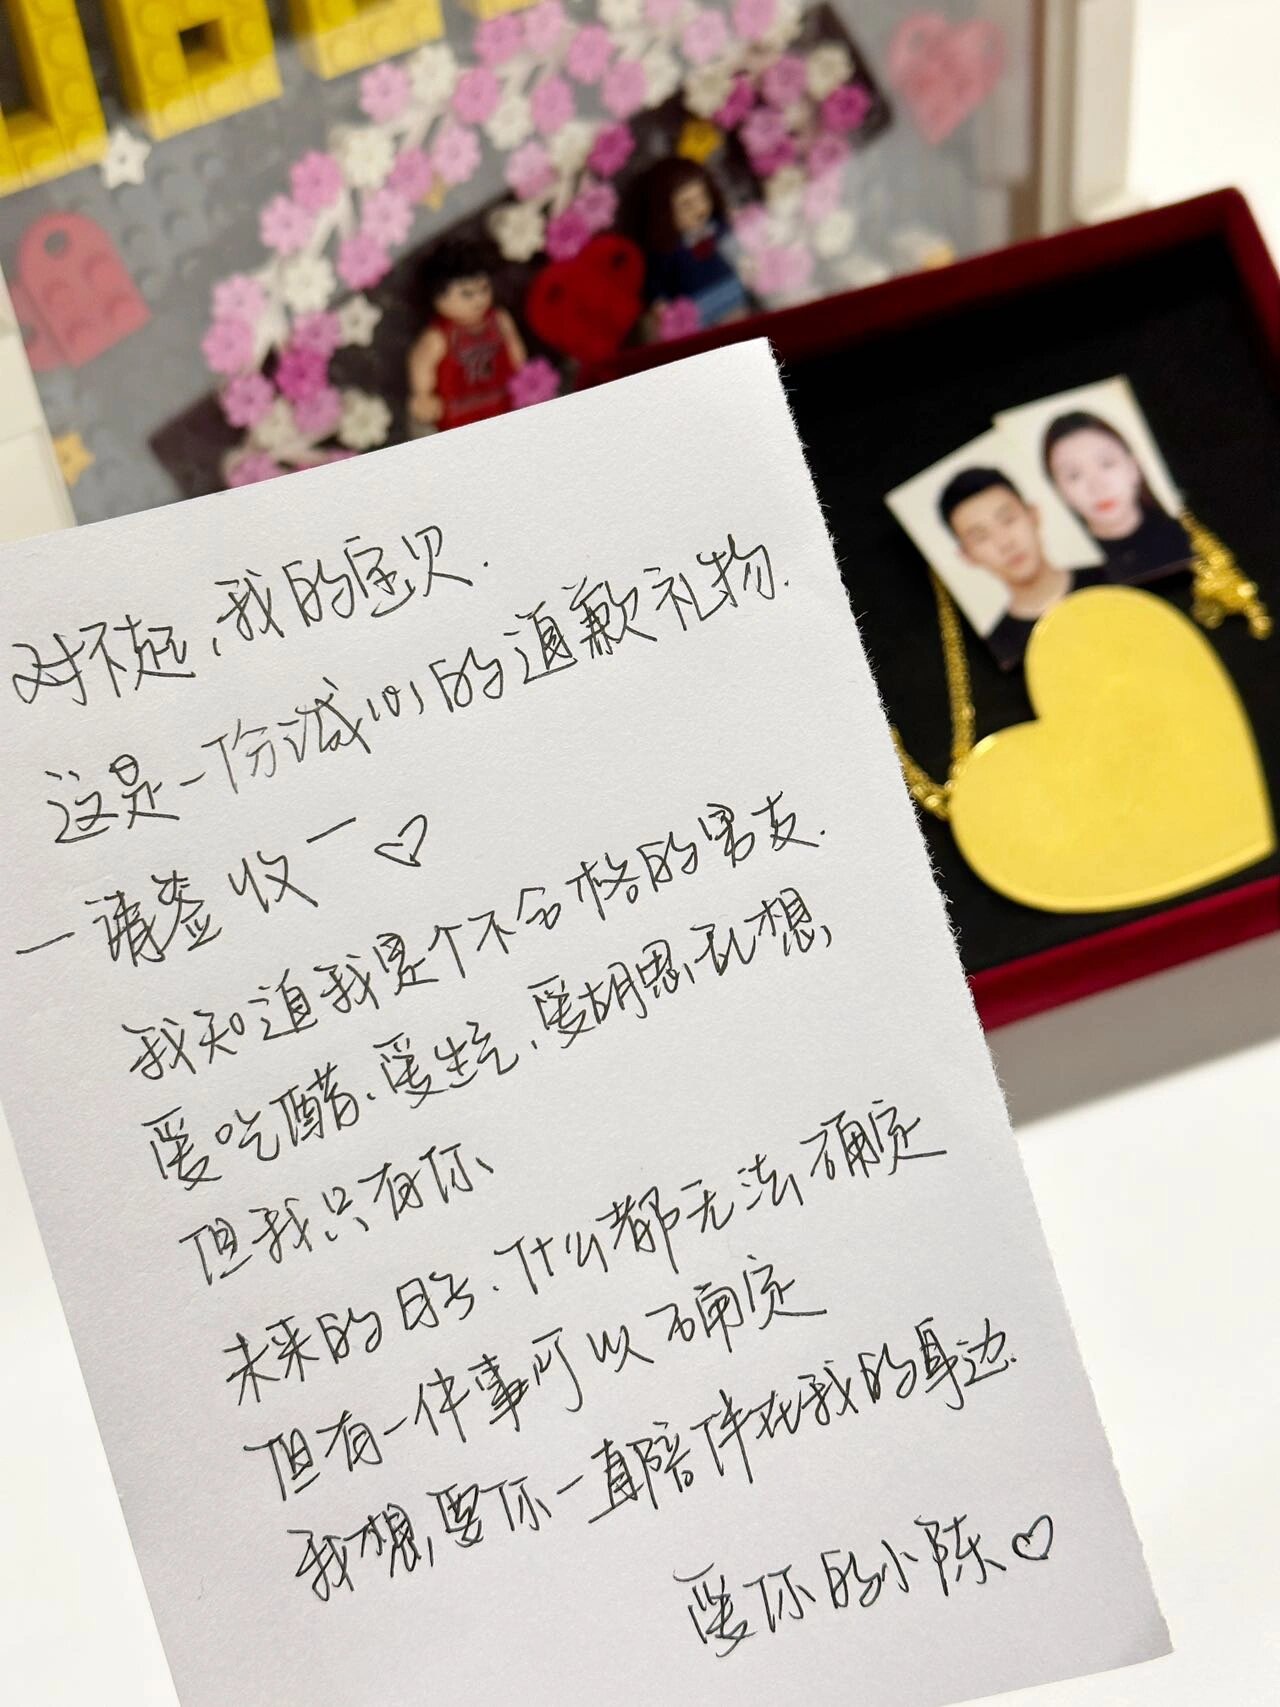 对不起，我的宝贝.
这是一份诚恳的道歉礼物.
一请签收一♡
我知道我是个不合格的男友.
爱吃醋、爱生气、爱胡思乱想,
但我只有你、
未来的日子、什么都无法确定
但有一件事可以确定
我想要你一直陪伴在我的身边.
爱你的小陈♡